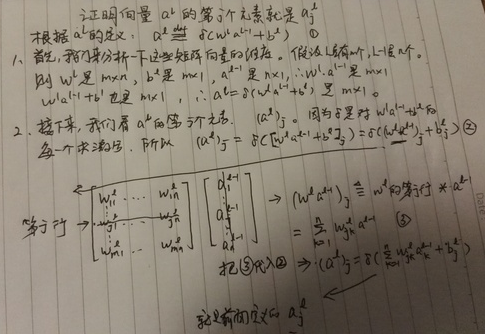 证明向量 aˡ 的第 j 个元素就是 aⱼˡ
根据 aˡ 的定义: aˡ ≝ δ(wˡaˡ⁻¹+bˡ) ①
1、首先,我们来分析一下这些矩阵向量的维度。假设 L层有m个, L-1是n个。
则 wˡ 是 m×n, bˡ 是 m×1, aˡ⁻¹ 是 n×1, ∴ wˡaˡ⁻¹ 是 m×1
wˡaˡ⁻¹+bˡ 也是 m×1, ∴ aˡ=δ(wˡaˡ⁻¹+bˡ) 是 m×1。
2、接下来,我们看 aˡ 的第 j 个元素 (aˡ)ⱼ。因为 δ 是对 wˡaˡ⁻¹+bˡ 的
每一个 所以 (aˡ)ⱼ = δ([wˡaˡ⁻¹+bˡ]ⱼ) = δ((wˡaˡ⁻¹)ⱼ+bⱼˡ) ②
第 j 行 → [w₁₁ˡ … w₁ₙˡ; wⱼ₁ˡ … wⱼₙˡ; wₘ₁ˡ … wₘₙˡ] [a₁ˡ⁻¹; aⱼˡ⁻¹; aₙˡ⁻¹] → (wˡaˡ⁻¹)ⱼ ≜ wˡ的第j行 * aˡ⁻¹
= Σₖ₌₁ⁿ wⱼₖˡ aˡ⁻¹ ③
把③代入② ⇒ (aˡ)ⱼ = δ(Σₖ₌₁ⁿ wⱼₖˡaₖˡ⁻¹ + bⱼˡ)
就是前面定义的 aⱼˡ